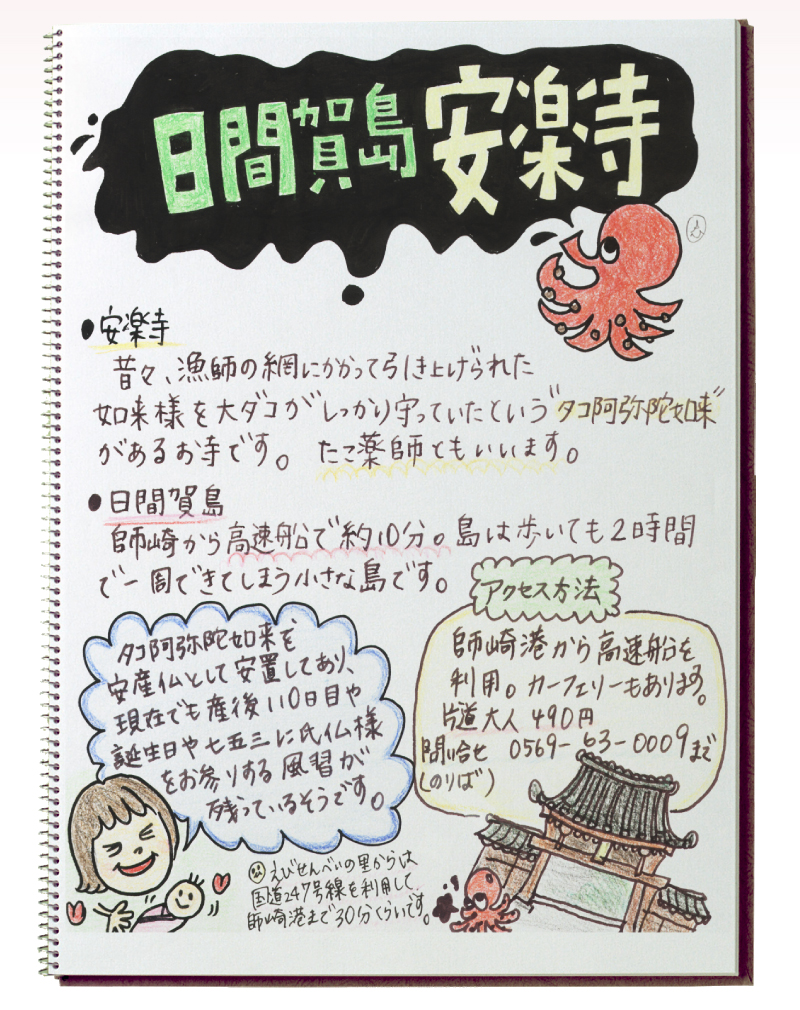 日間賀島安楽寺
●安楽寺
昔々、漁師の網にかかって引き上げられた
如来様を大ダコがしっかり守っていたという"タコ阿弥陀如来"
があるお寺です。たこ薬師ともいいます。
●日間賀島
師崎から高速船で約10分。島は歩いても2時間
で一周できてしまう小さな島です。
タコ阿弥陀如来を
安産仏として安置してあり、
現在でも産後110日目や
誕生日や七五三に氏仏様
をお参りする風習が
残っているそうです。
アクセス方法
師崎港から高速船を
利用。カーフェリーもあります。
片道大人490円
問い合せ 0569-63-0009まで
(のりば)
えびせんべいの里からは
国道247号線を利用して、
師崎港まで30分くらいです。